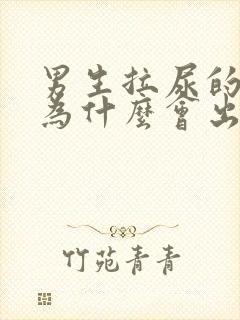 男生拉尿的
為什麼會出
竹苑青青